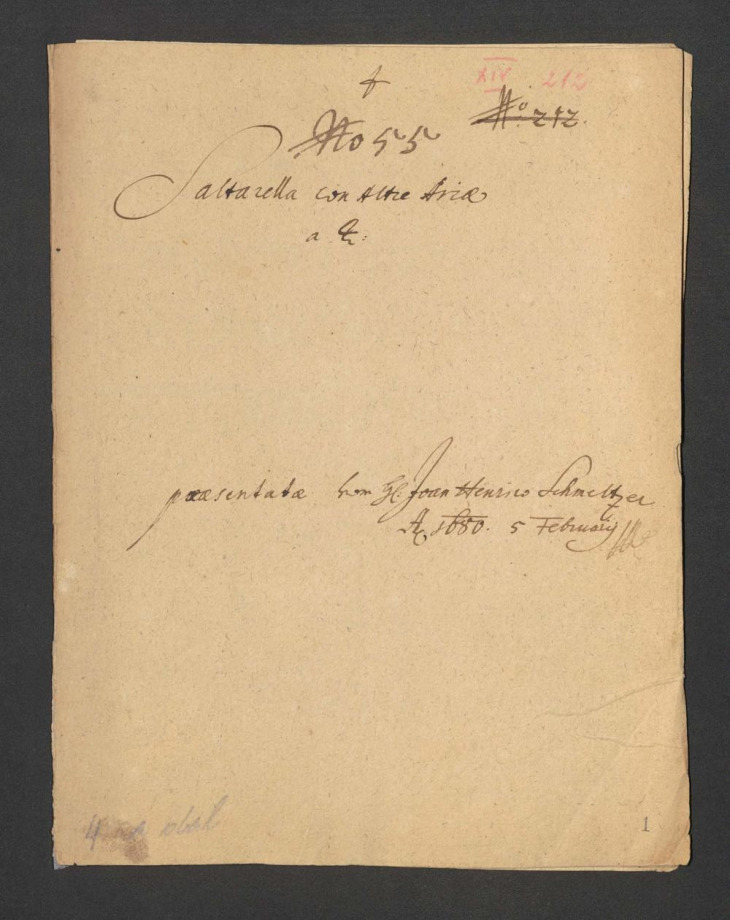 XIV 212
No. 212.
No 55
Saltarella con Altre Ariæ
a 4:
præsentatæ vom H. Joan Henrico Schmeltzer
Aō 1680. 5 Februarij
4
1